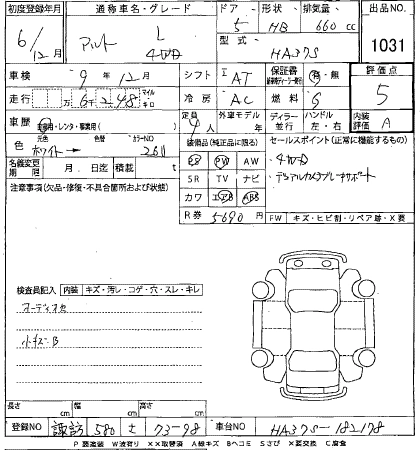 初度登録年月 通称車名・グレード ドア 形状 排気量 出品No.
6/12月 アルト L 4WD 5 HB 660cc
型式 HA37S 1031
車検 9年12月 シフト AT 保証書 有・無 評価点
走行 6千248 マイル キロ 冷房 AC 燃料 G 5
車歴 自家用・レンタ・事業用( ) 定員 4人 外車モデル ディーラー 並行 ハンドル 左・右 内装評価 A
色 ホワイト→ 色替 カラーNO 26U 装備品(純正品に限る) セールスポイント(正常に機能するもの)
名義変更期限 月 日迄 積載 t PS PW AW 4WD
注意事項(欠品・修復・不具合箇所および状態) SR TV ナビ デュアルカメラブレーキサポート
カワ エアB ABS
R券 5690円 FW キズ・ヒビ割・リペア跡・X要
検査員記入 内装 キズ・汚レ・コゲ・穴・スレ・キレ
オーディオレス
小キズ・B
長さ cm 幅 cm 高さ cm
登録NO 諏訪 580 せ 73-98 車台NO HA37S-182178
P要塗装 W波有り ××取替済 A線キズ Bヘコミ Sさび ×要交換 C腐食